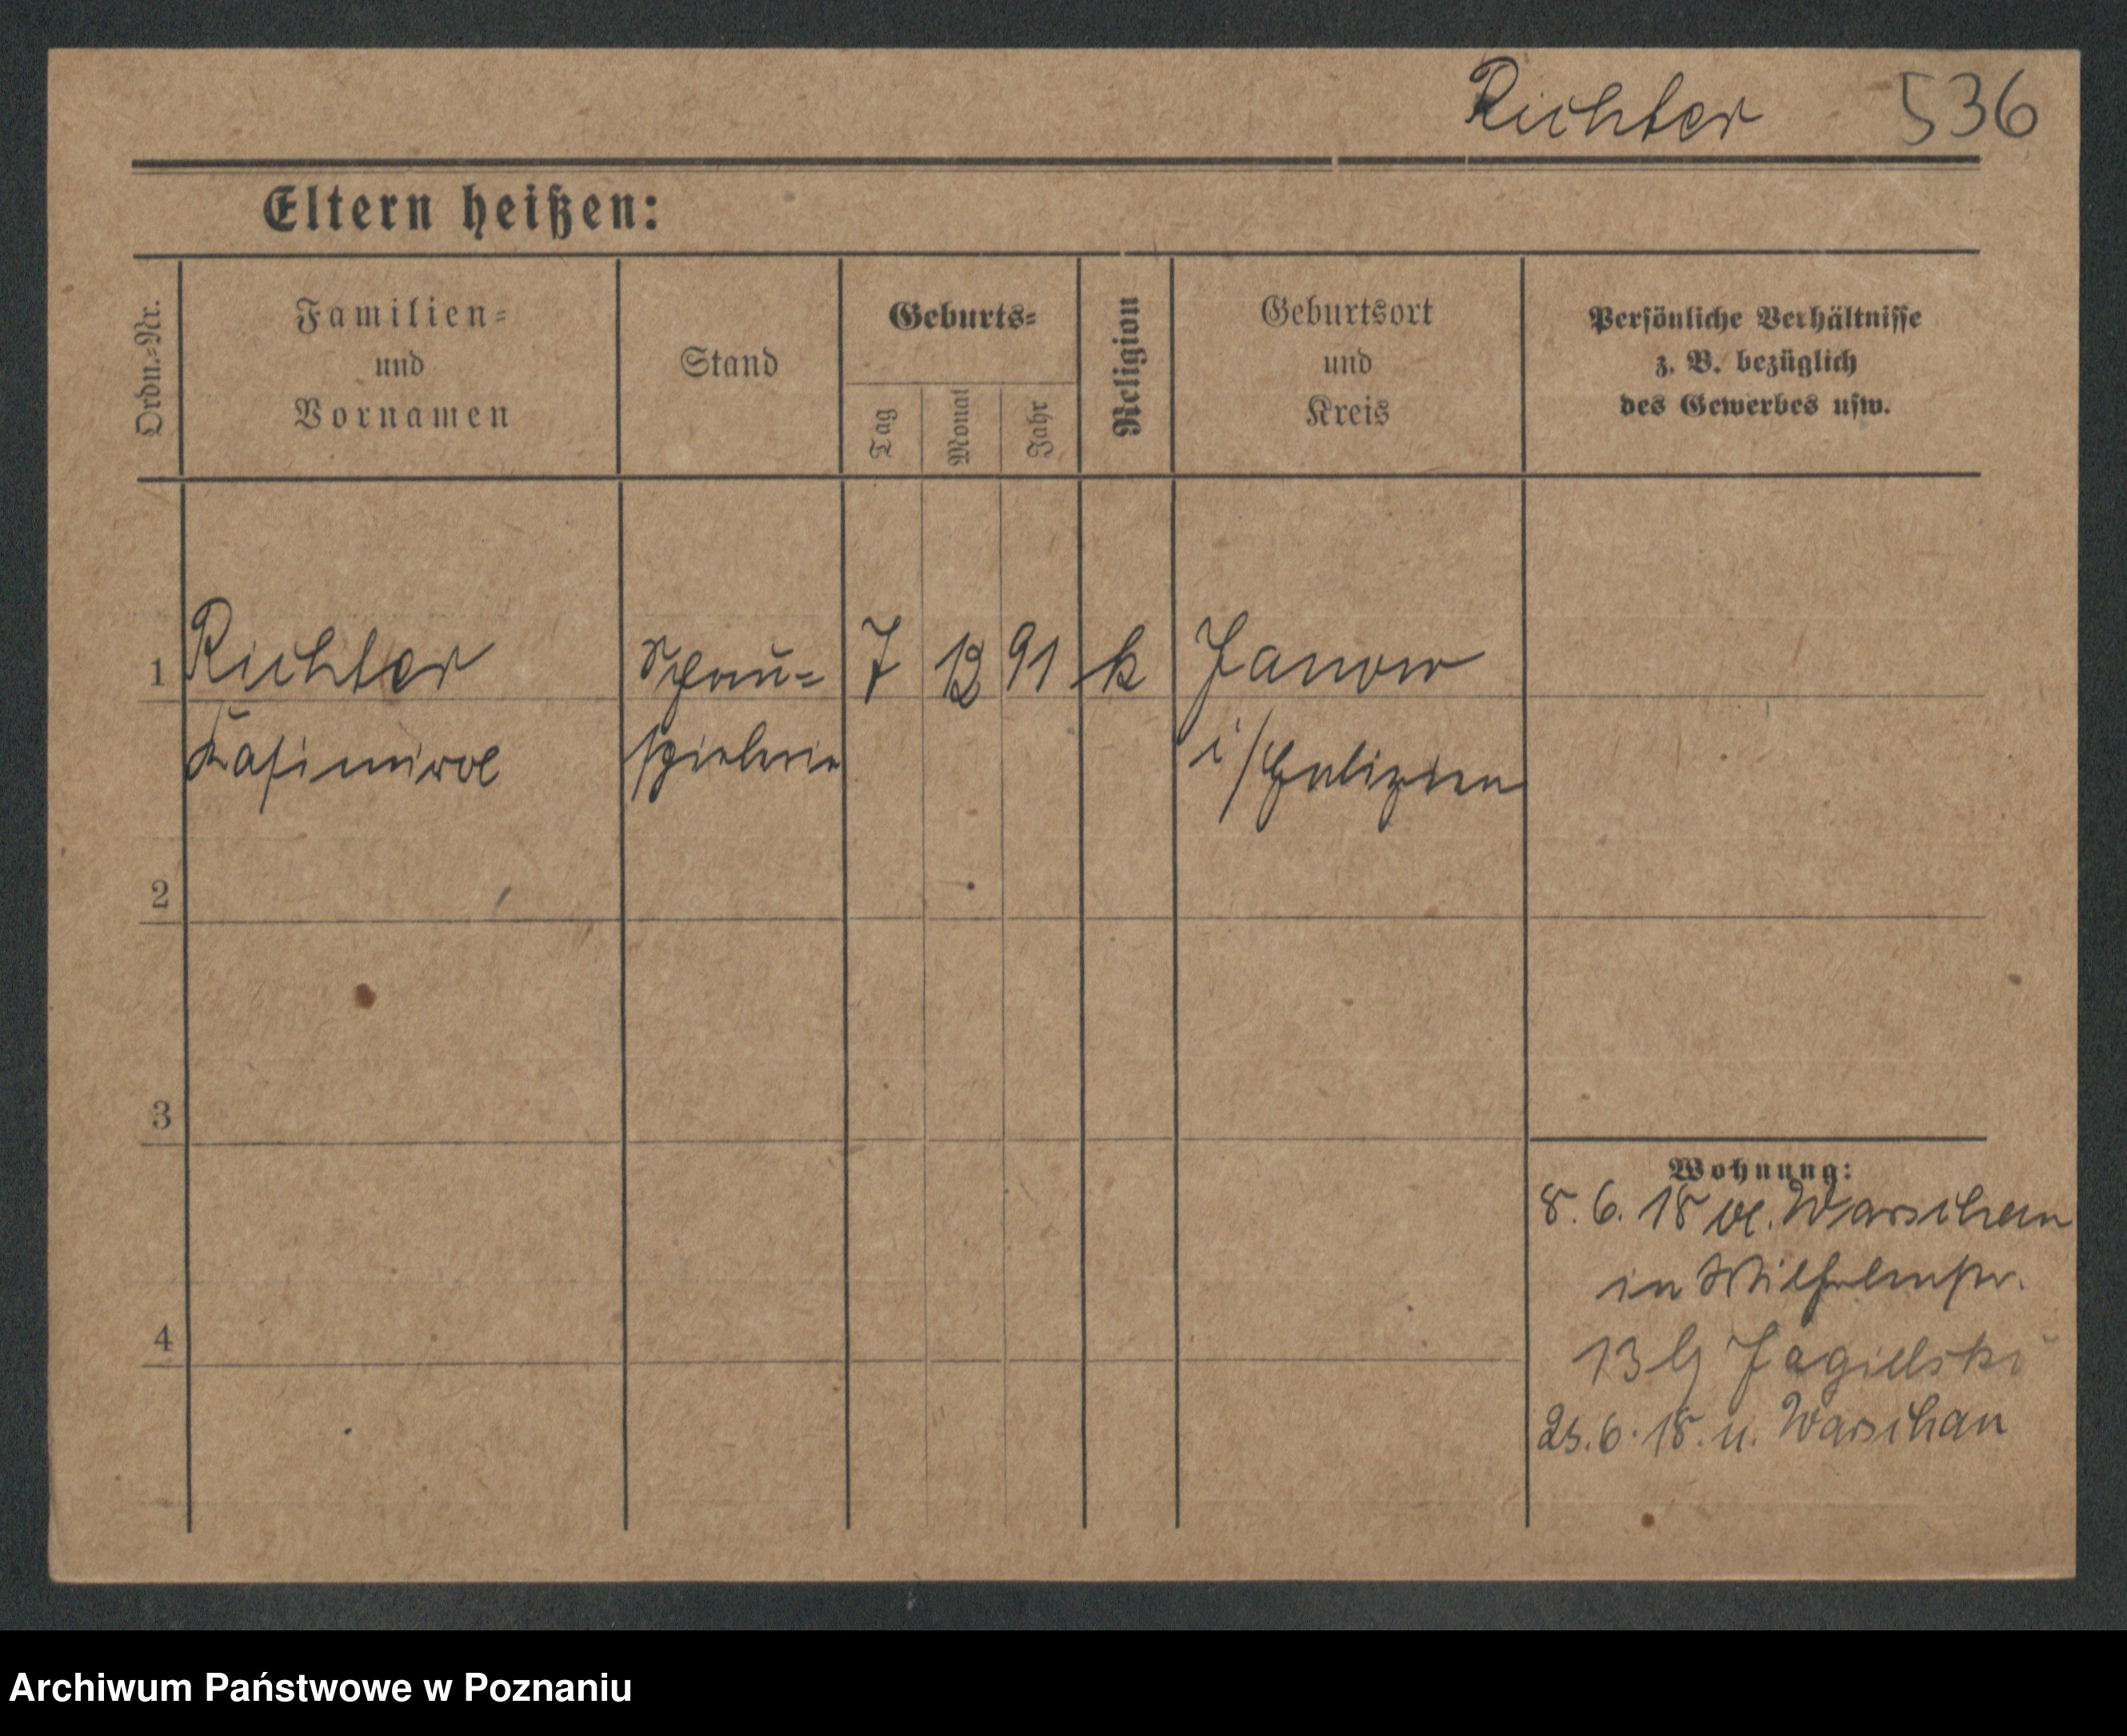 Richter 536
Eltern heißen:
Ordn.=Nr.
Familien=
und
Vornamen
Stand
Geburts=
Tag
Monat
Jahr
Religion
Geburtsort
und
Kreis
Persönliche Verhältnisse
z. B. bezüglich
des Gewerbes usw.
1 Richter Schau= 7 12 91 k Janow
Kasimira spielerin i/Galizien
2
3
4
Wohnung:
8. 6. 18 v. Warschau
in Wilhelmstr.
13 b/ Jagielski
25. 6. 18. n. Warschau
Archiwum Państwowe w Poznaniu